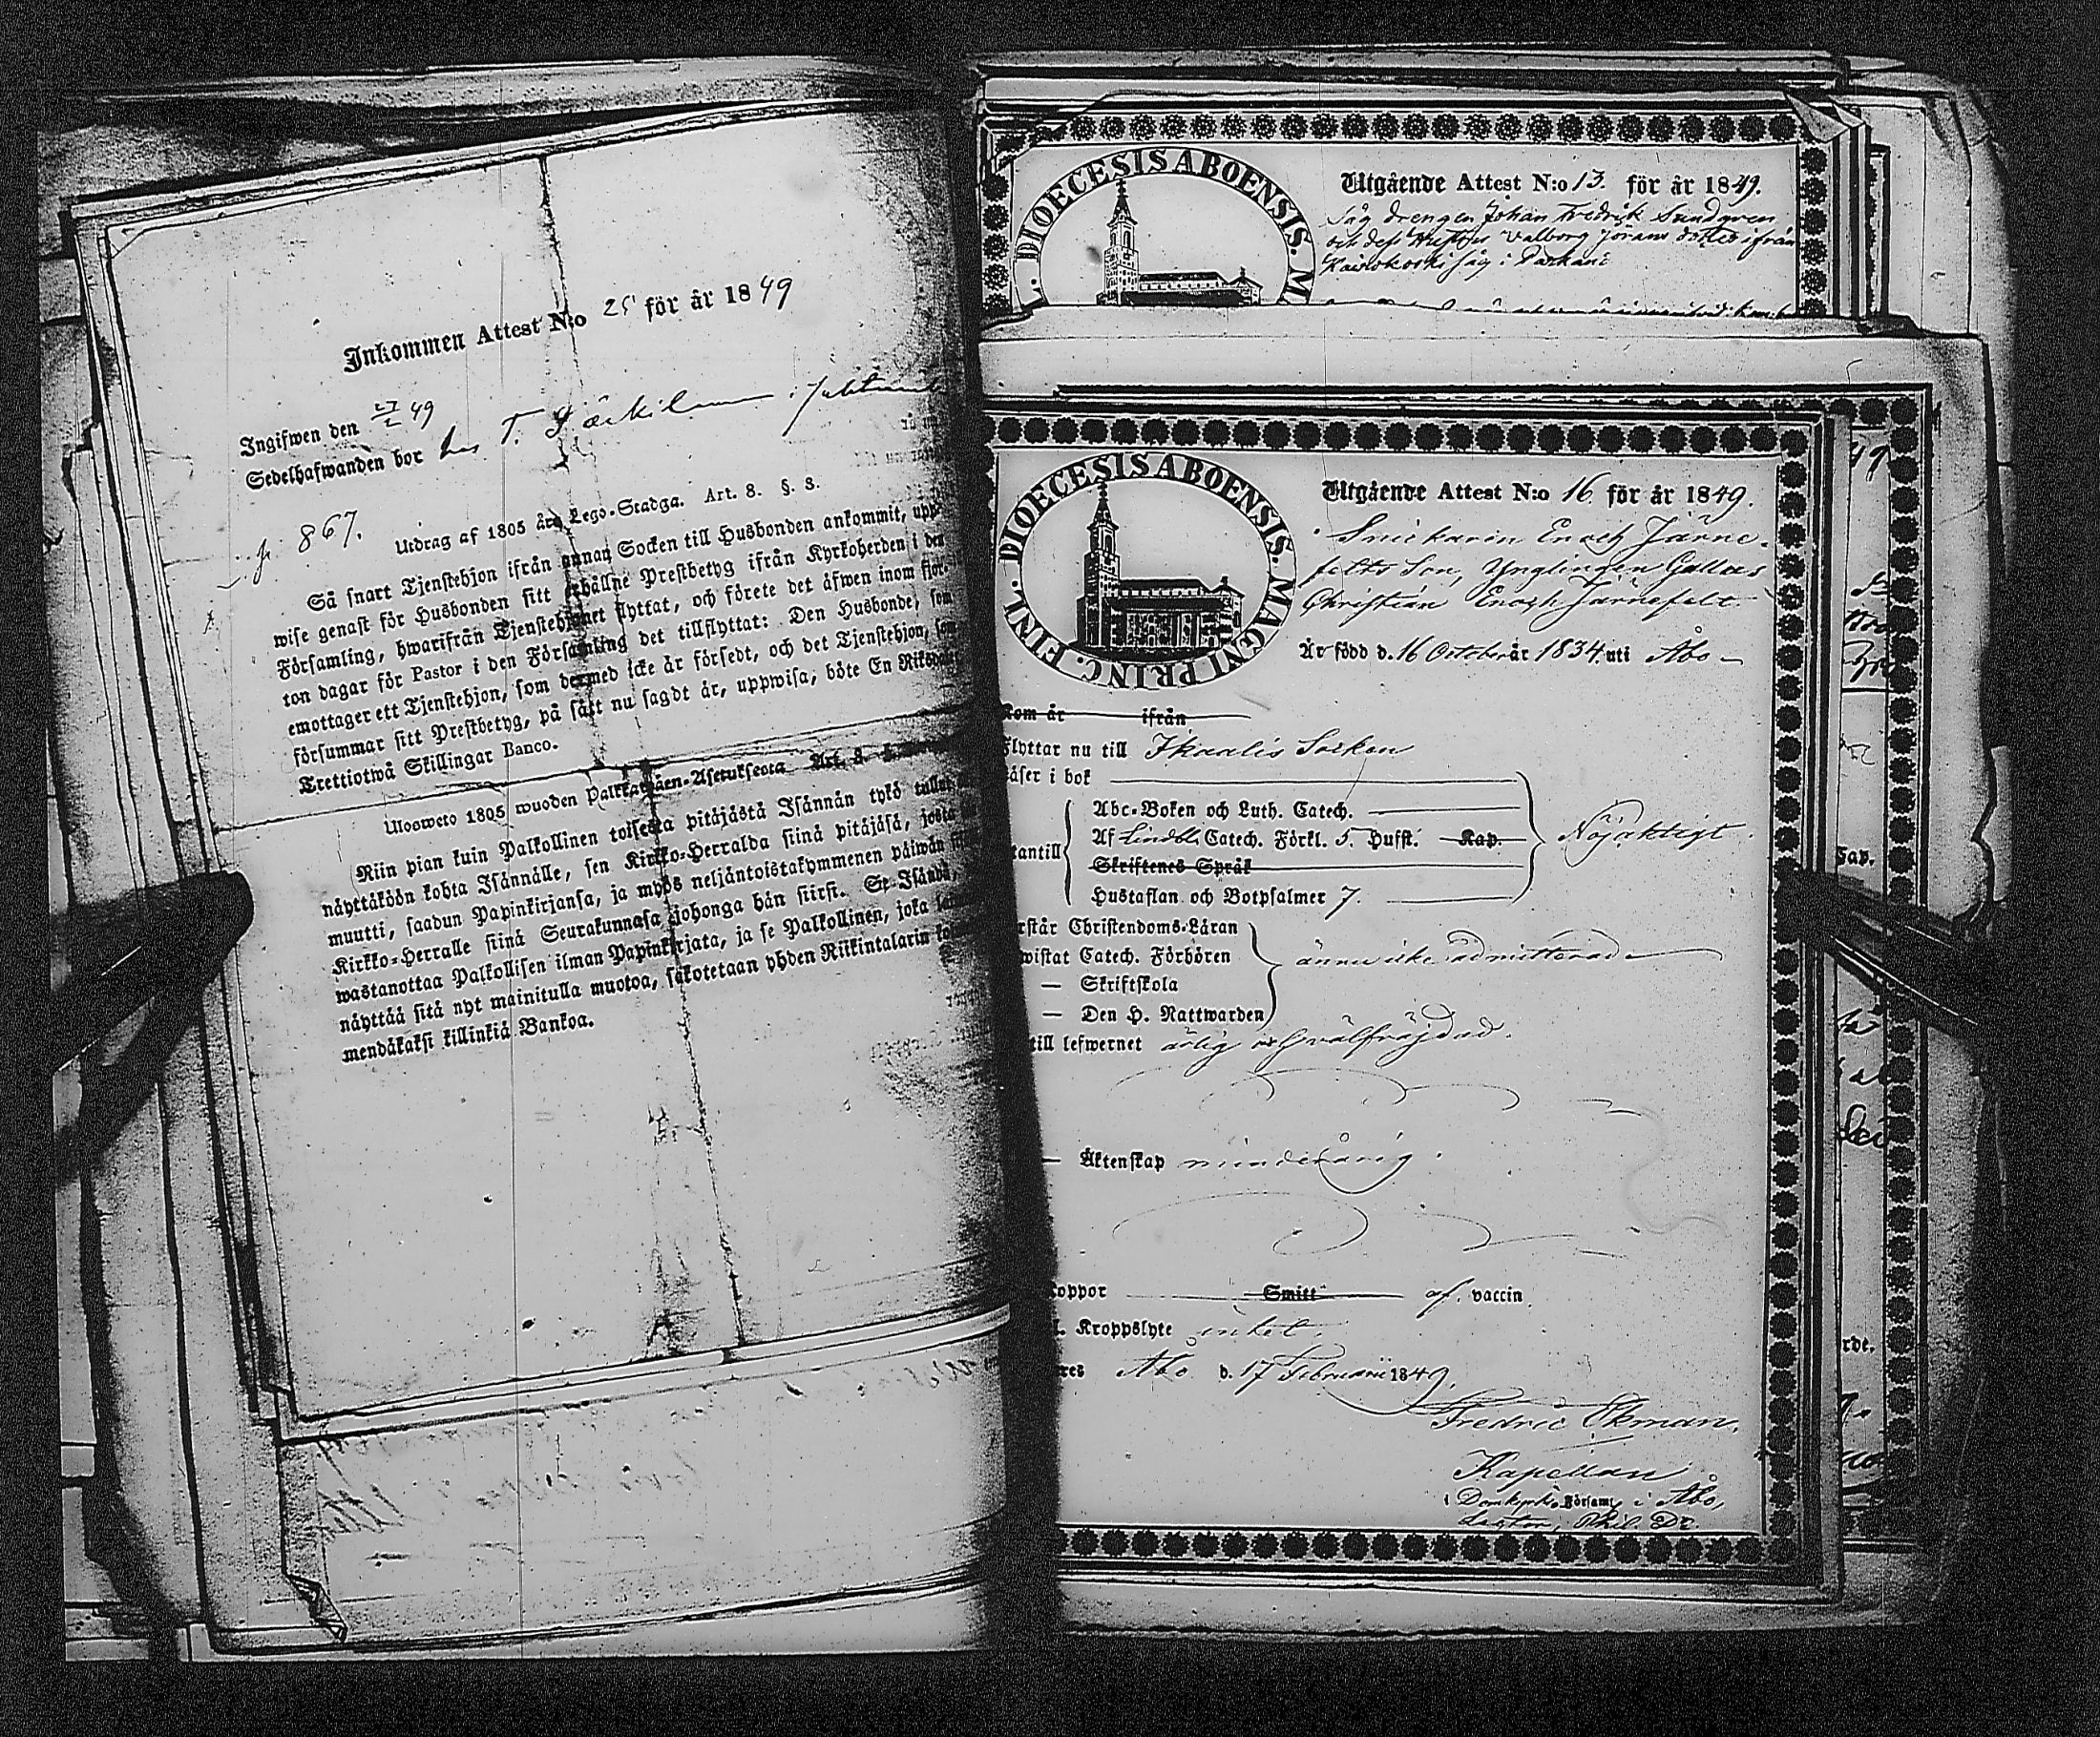 Inkommen Attest N:o 25 för år 1849
Ingifwen den 27/2 49
Sedelhafwanden bor hos T. i
867.
Utdrag af 1805 års Lego-Stadga. Art. 8. §. 3.
Så snart Tjenstehjon ifrån annan Socken till Husbonden ankommit, upp-
wise genast för Husbonden sitt erhållne Prestbetyg ifrån Kyrkoherden i den
Församling, hwarifrån Tjenstehjonet flyttat, och förete det äfwen inom fjor-
ton dagar för Pastor i den Församling det tillflyttat: Den Husbonde, som
emottager ett Tjenstehjon, som dermed icke är försedt, och det Tjenstehjon, som
försummar sitt Prestbetyg, på sätt nu sagdt är, uppwisa, böte En Riksdaler
Trettiotwå Skillingar Banco.
Ulosweto 1805 wuoden Palkkawäen-Asetuksesta Art. 8.
Niin pian kuin Palkollinen toisesta pitäjästä Isännän tykö tullut
näyttäköön kohta Isännälle, sen Kirkko-Herralda siinä pitäjäsä, josta
muutti, saadun Papinkirjansa, ja myös neljäntoistakymmenen päiwän
Kirkko-Herralle siinä Seurakunnasa johonga hän siirsi. Se Isändä,
wastanottaa Palkollisen ilman Papinkirjata, ja se Palkollinen, joka
näyttää sitä nyt mainitulla muotoa, sakotetaan yhden Riikintalarin
mendäkaksi killinkiä Bankoa.
DIOECESIS ABOENSIS. M
Utgående Attest N:o 13. för år 1849.
Såg drengen Johan Fredrik Sundgren
och dess Hustru Valborg Jörans dotter ifrån
Kairokoski såg i Parkano
DIOECESIS ABOENSIS. MAGNI PRINC. FINL.
Utgående Attest N:o 16 för år 1849.
Snickarin Enoch Järne-
felts Son, Ynglingen Gustas
Christian Enoch Järnefelt.
Är född d. 16 October år 1834. uti Åbo
Kom år ifrån
Flyttar nu till Ikaalis Socken
Läser i bok
Abc-Boken och Luth. Catech.
Af Lindbl. Catech. Förkl. 5. Hufst. Kap.
utantill
Skriftenes Språk
Hustaflan och Botpsalmer 7.
Nöjaktigt.
rstår Christendoms-Läran
wistat Catech. Förhören
— Skriftskola
— Den H. Nattwarden
ännu icke admitterad
till lefwernet ärlig och välfräjdad.
— Äktenskap minderårig.
oppor Smitt af. vaccin
Kroppslyte inket.
res Åbo d. 17 Februarii 1849.
Fredric Ekman,
Kapellan
i Domkyrko Församl i Åbo,
Lector, Phil. Dr.